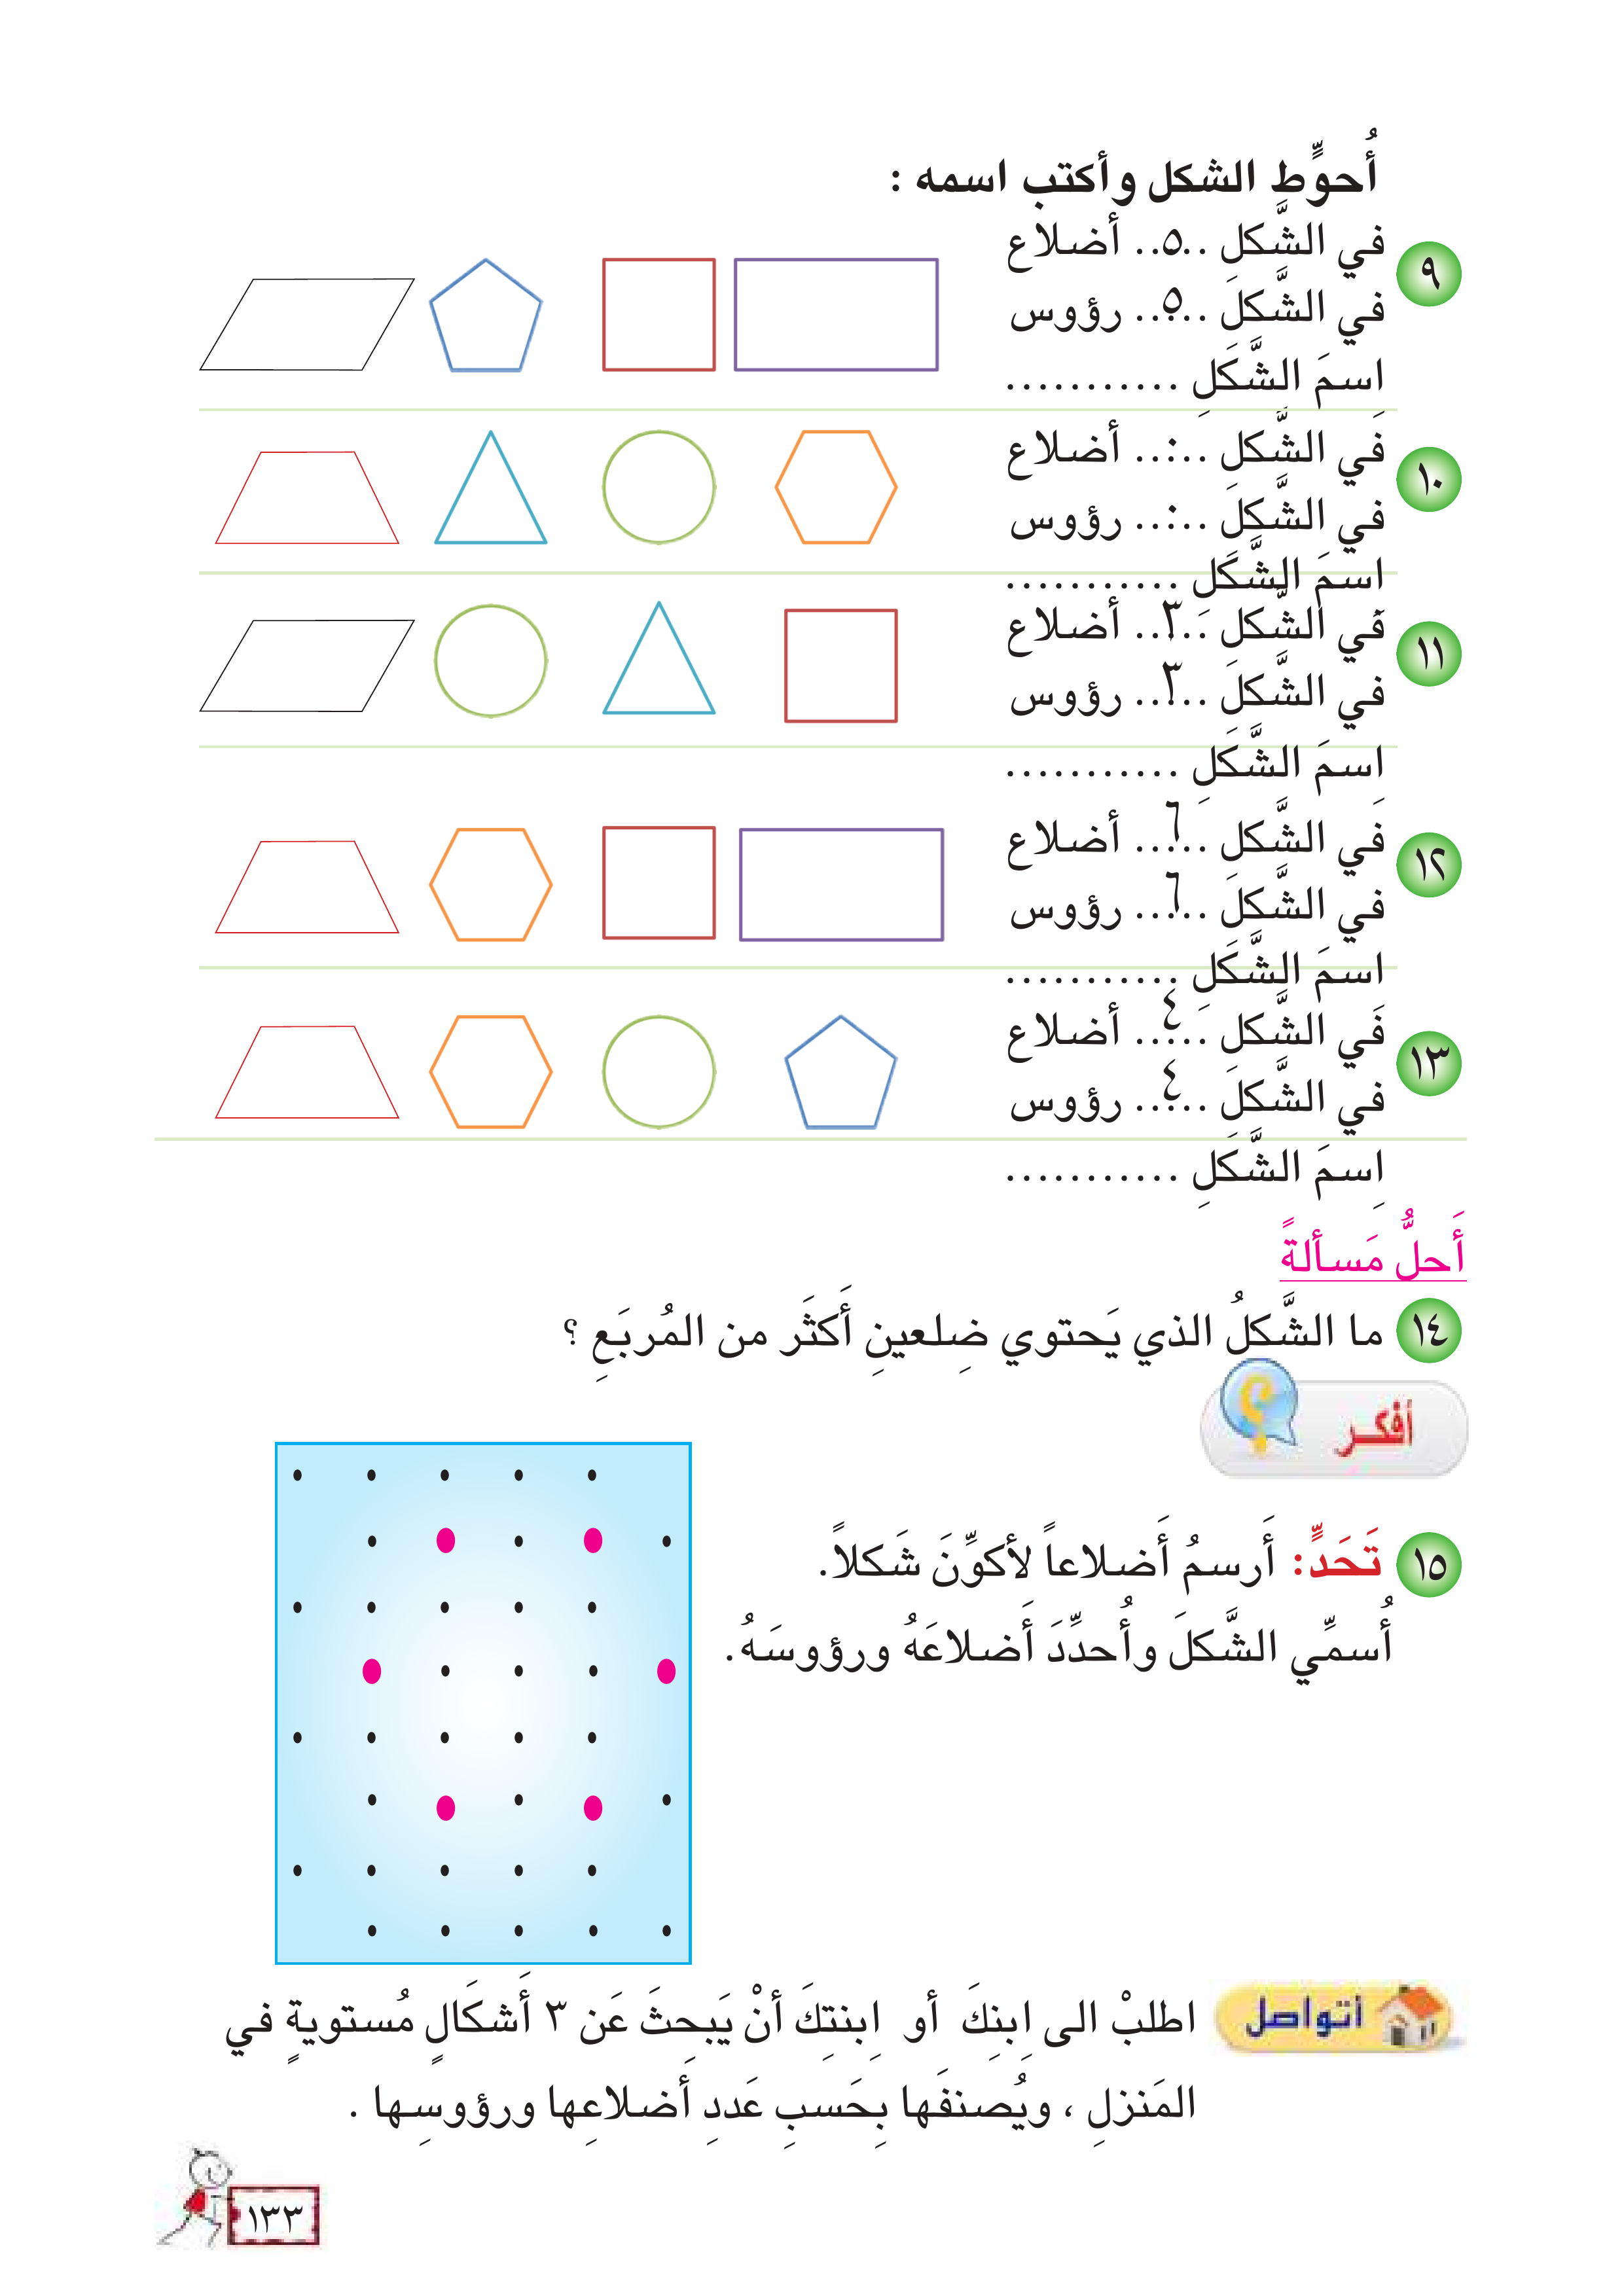 أُحوِّط الشكل وأكتب اسمه :
٩ في الشَّكلِ ..٥.. أضلاع
في الشَّكلِ ..٥.. رؤوس
اِسمَ الشَّكَلِ ...........
١٠ في الشَّكلِ ..٠.. أضلاع
في الشَّكلِ ..٠.. رؤوس
اِسمَ الشَّكَلِ ...........
١١ في الشَّكلِ ..٣.. أضلاع
في الشَّكلِ ..٣.. رؤوس
اِسمَ الشَّكَلِ ...........
١٢ في الشَّكلِ ..٦.. أضلاع
في الشَّكلِ ..٦.. رؤوس
اِسمَ الشَّكَلِ ...........
١٣ في الشَّكلِ ..٤.. أضلاع
في الشَّكلِ ..٤.. رؤوس
اِسمَ الشَّكَلِ ...........
أَحلُّ مَسألةً
١٤ ما الشَّكلُ الذي يَحتوي ضِلعينِ أَكثَر من المُربَعِ ؟
أفكر
١٥ تَحَدٍّ: أَرسمُ أَضلاعاً لأكوِّنَ شَكلاً.
أُسمِّي الشَّكلَ وأُحدِّدَ أَضلاعَهُ ورؤوسَهُ.
أتواصل اطلبْ الى اِبنِكَ أو اِبنتِكَ أنْ يَبحِثَ عَن ٣ أَشكَالٍ مُستويةٍ في
المَنزلِ ، ويُصنفَها بِحَسبِ عَددِ أَضلاعِها ورؤوسِها .
١٣٣